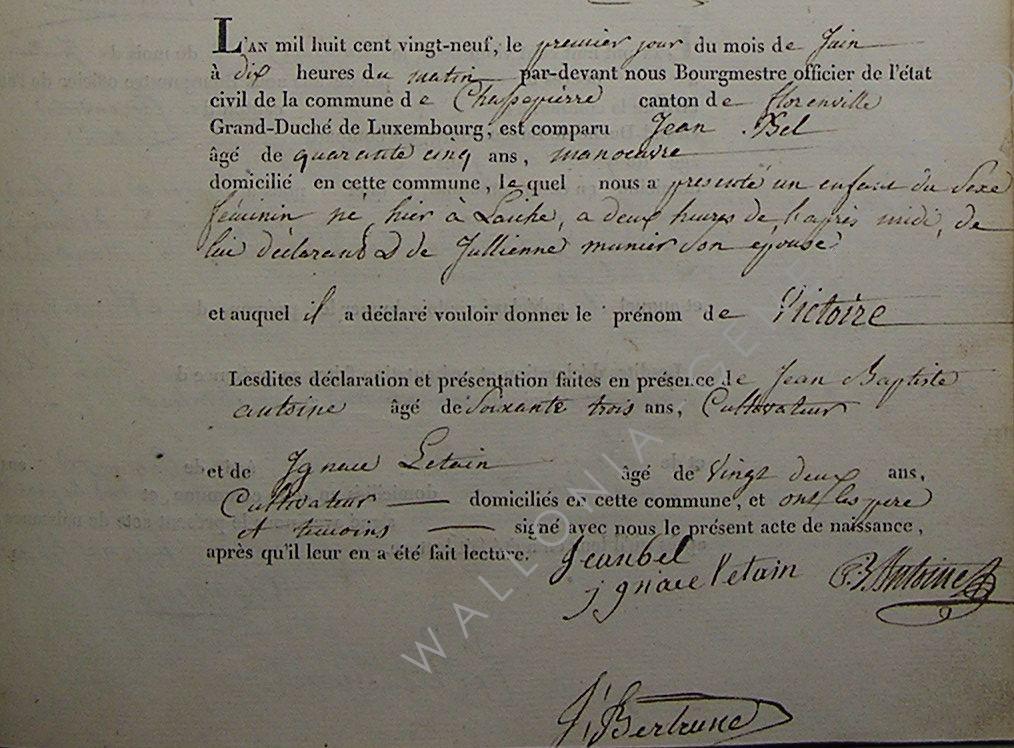 L'AN mil huit cent vingt-neuf, le premier jour du mois de Juin
à dix heures du matin par-devant nous Bourgmestre officier de l'état
civil de la commune de Chassepierre canton de florenville
Grand-Duché de Luxembourg, est comparu Jean Bel
âgé de quarante cinq ans, manoeuvre
domicilié en cette commune, lequel nous a presenté un enfant du Sexe
féminin né hier à Laiche, a deux heures de l'après midi, de
lui déclarant & de Jullienne munier Son épouse
et auquel il a déclaré vouloir donner le prénom de Victoire
Lesdites déclaration et présentation faites en présence de Jean Baptiste
antoine âgé de Soixante trois ans, Cultivateur
et de Ignace Letain âgé de Vingt deux ans,
Cultivateur domiciliés en cette commune, et ont les pere
et temoins signé avec nous le présent acte de naissance,
après qu'il leur en a été fait lecture. Jeanbel
jgnace letain J.B. Antoine
WALLONIA
Bertrune